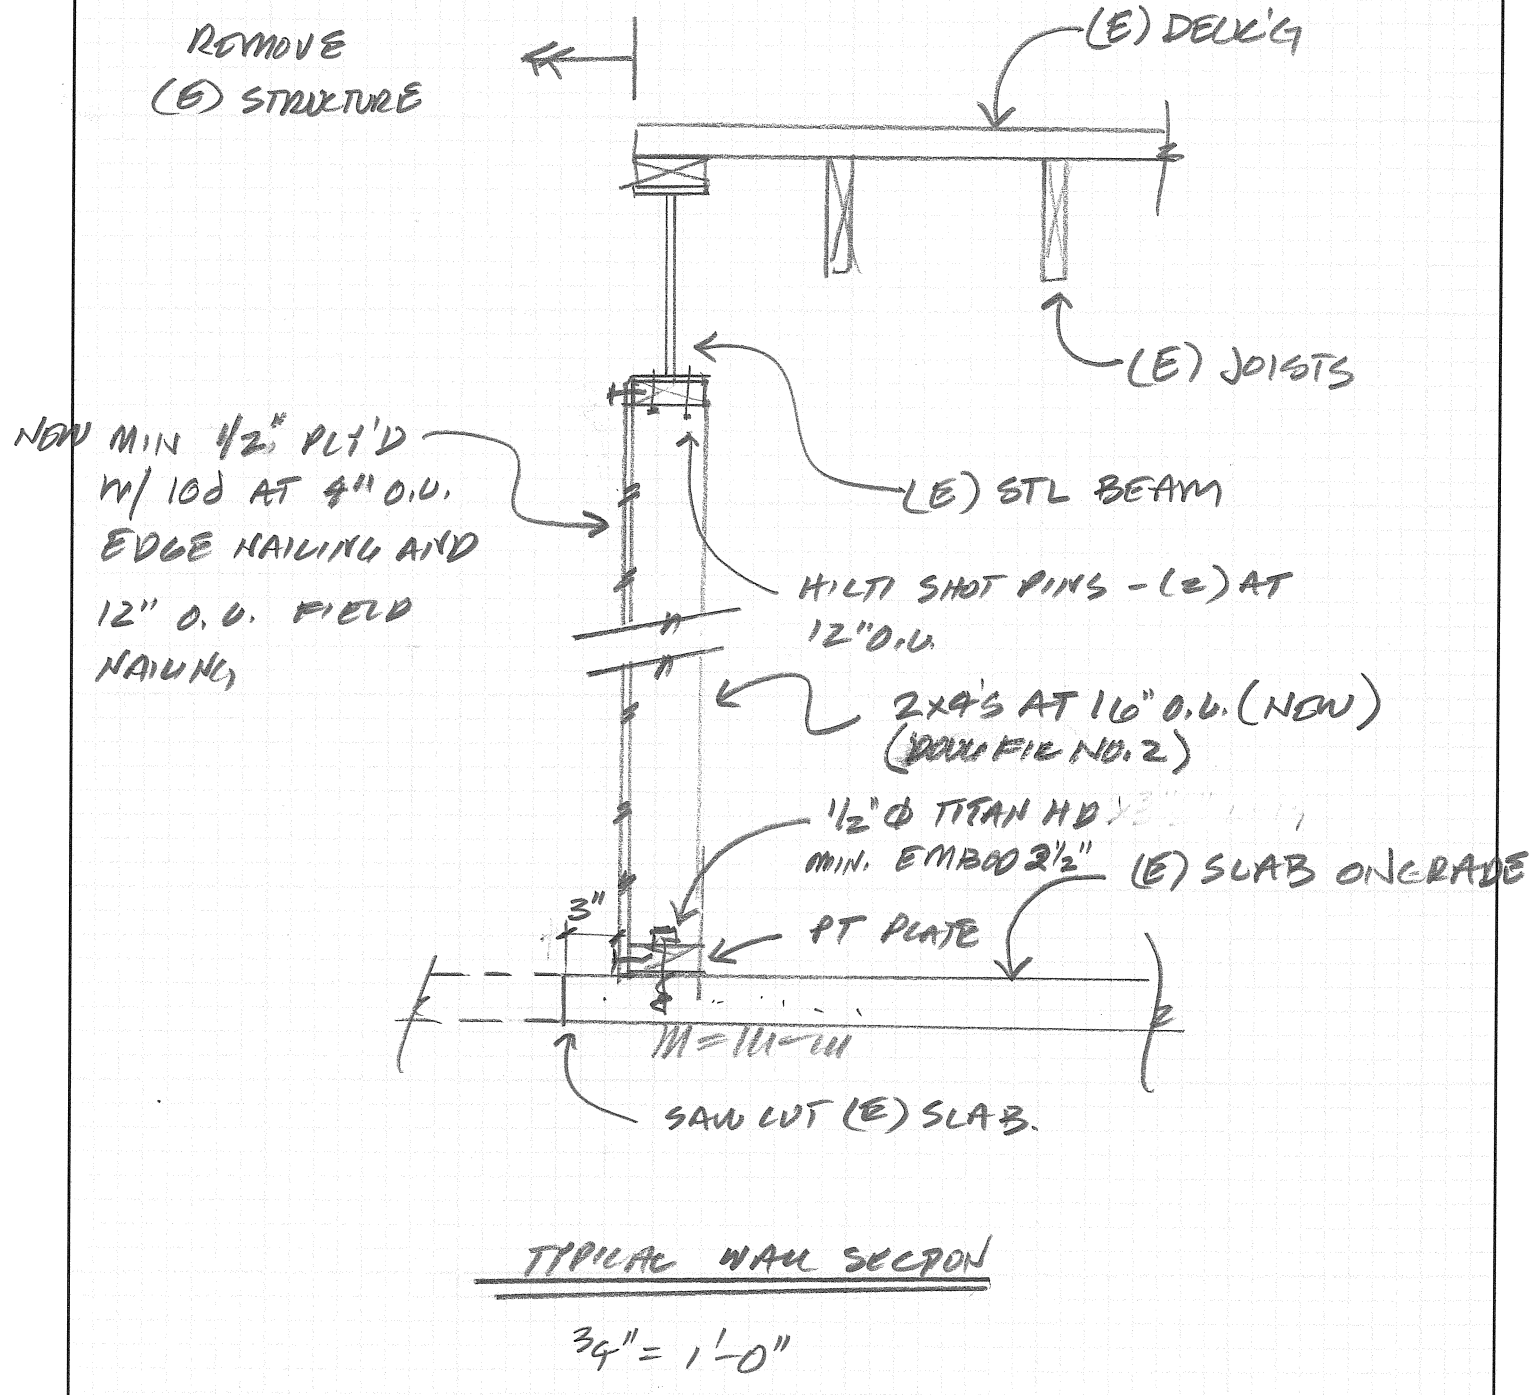 REMOVE
(E) STRUCTURE
(E) DECK'G
(E) JOISTS
NEW MIN 1/2" PLY'D
W/ 10d AT 4" O.C.
EDGE NAILING AND
12" O.C. FIELD
NAILING
(E) STL BEAM
HILTI SHOT PINS - (2) AT
12" O.C.
2x4'S AT 16" O.C. (NEW)
(DOUG FIR NO. 2)
1/2" Φ TITAN HD
MIN. EMBED 2 1/2"
(E) SLAB ON GRADE
3"
PT PLATE
SAW CUT (E) SLAB.
TYPICAL WALL SECTION
3/4" = 1'-0"